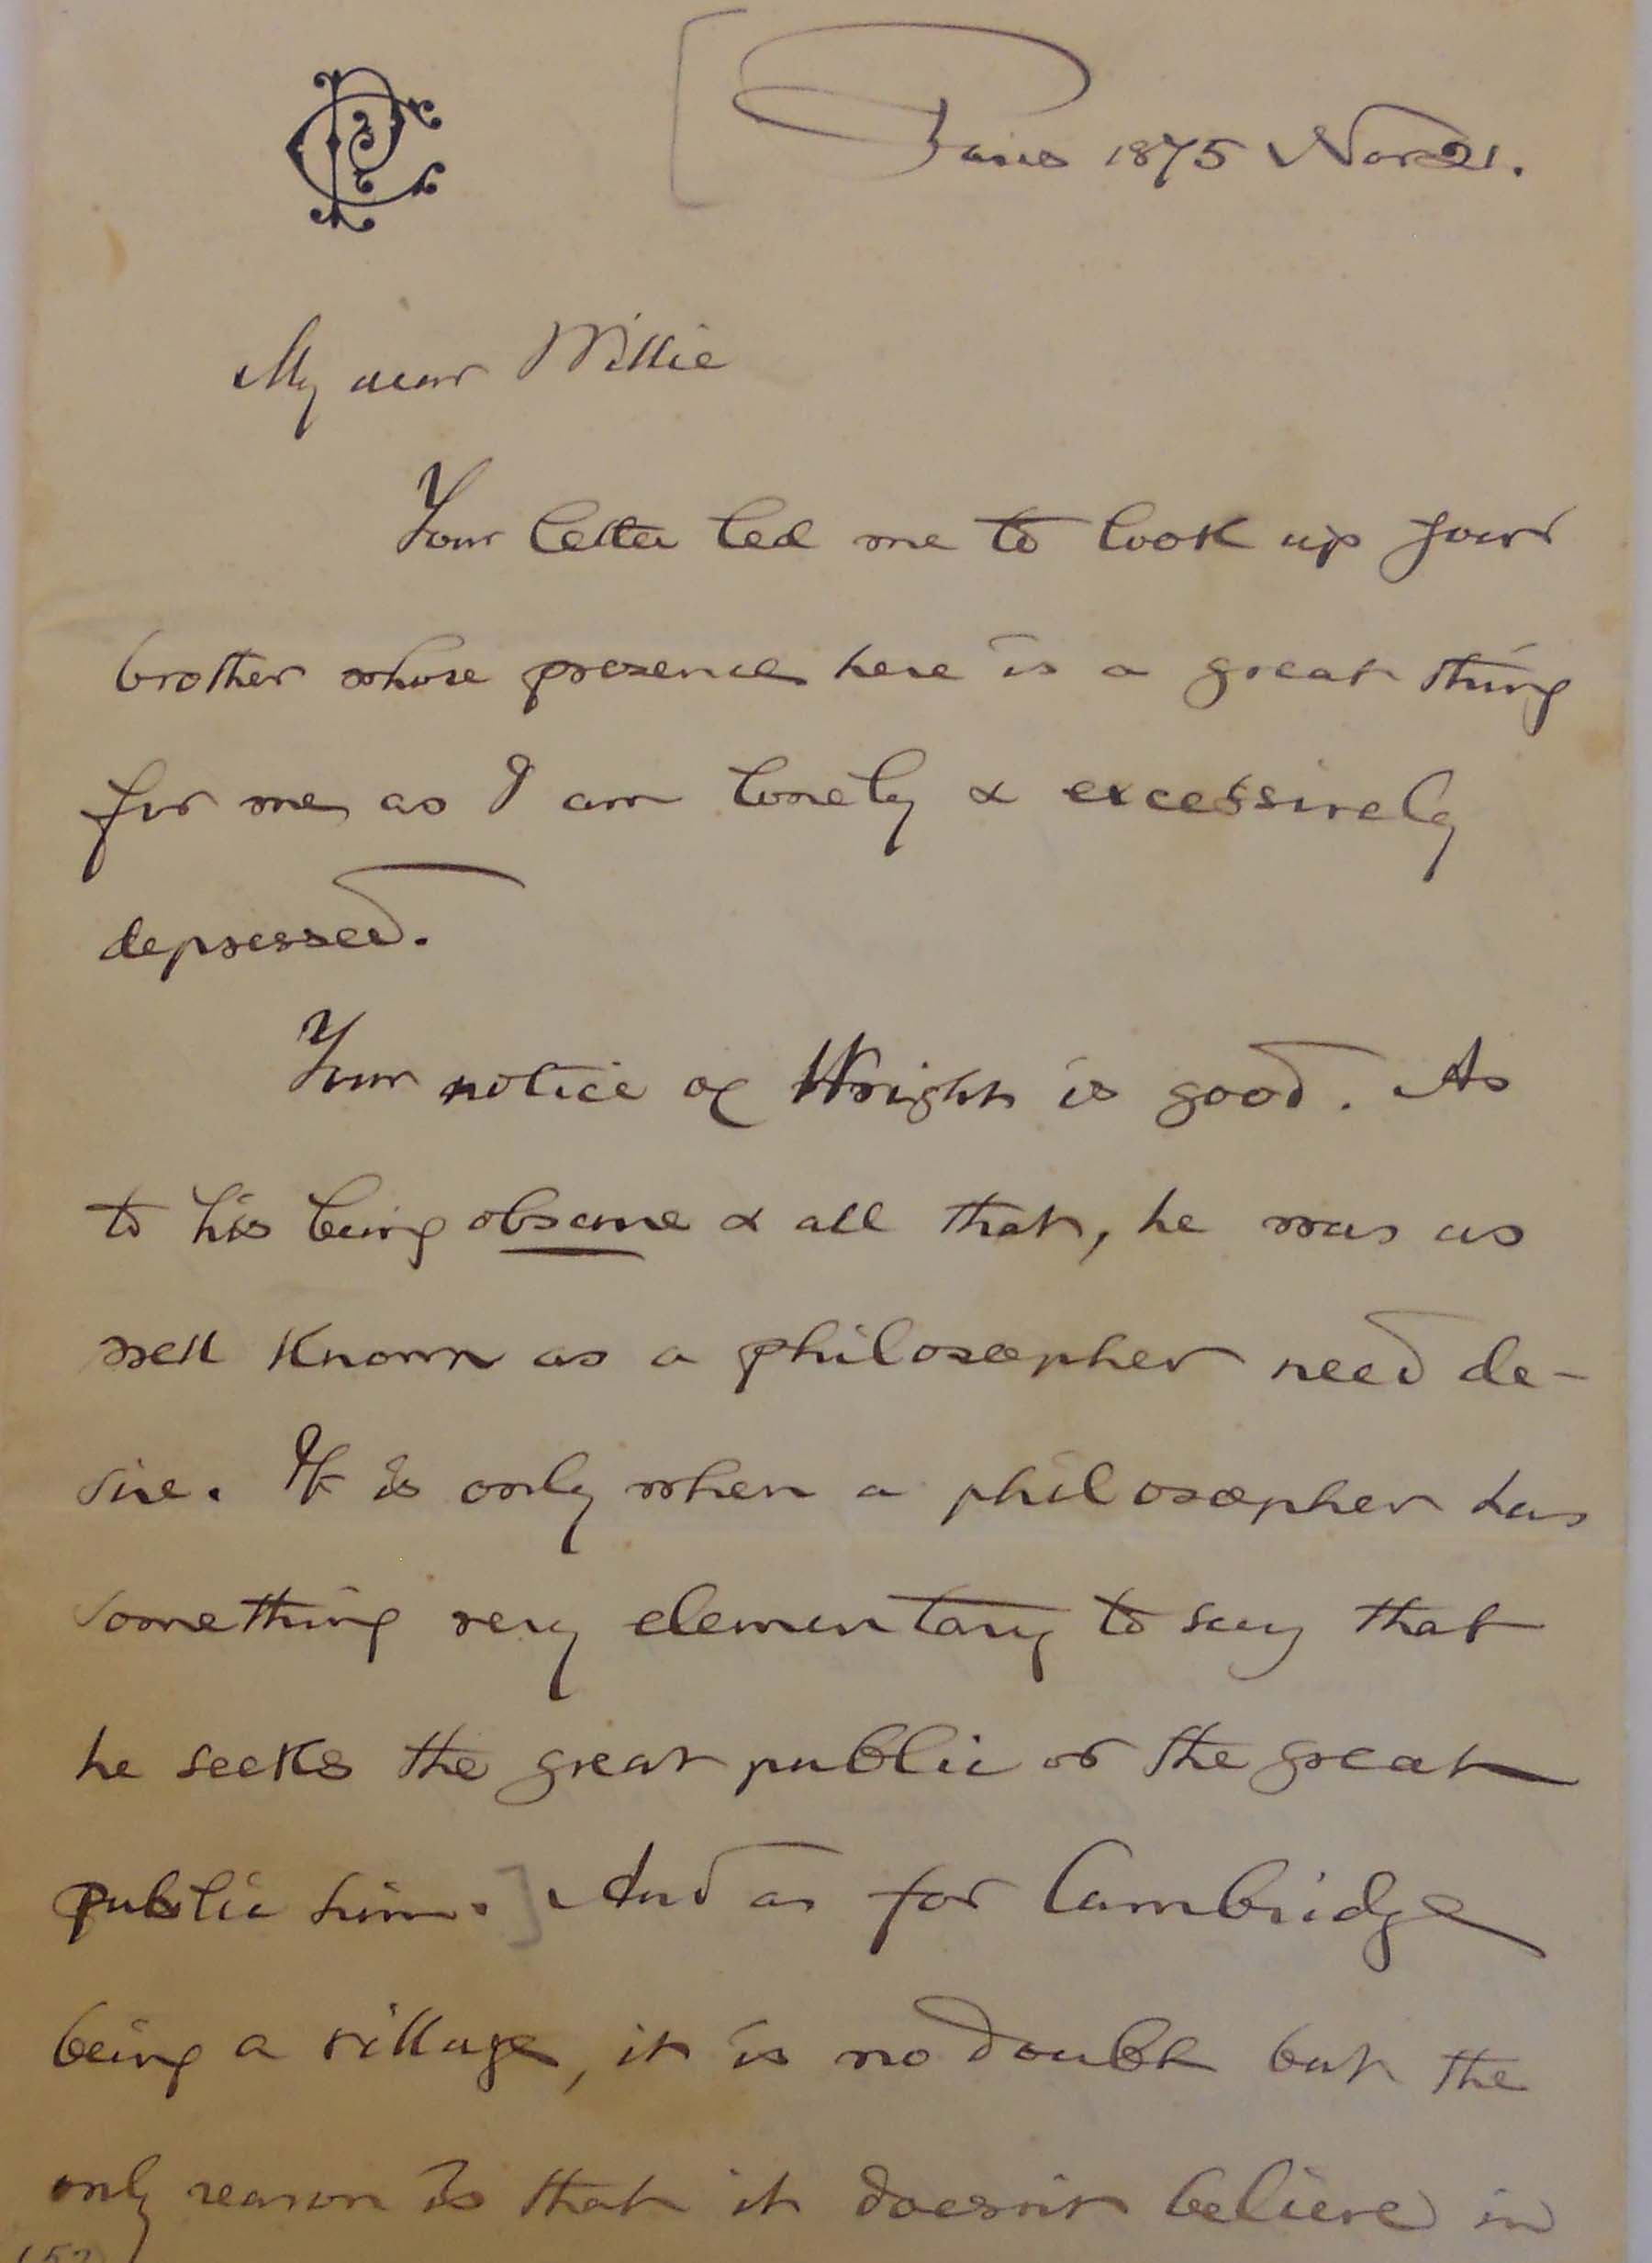 [Paris 1875 Nov 21.
My dear Willie
Your letter led me to look up your
brother whose presence here is a great thing
for me as I am lonely & excessively
depressed.
Your notice of Wright is good. As
to his being obscure & all that, he was as
well known as a philosopher need de-
sire. It is only when a philosopher has
something very elementary to say that
he seeks the great public or the great
public him.] And as for Cambridge
being a village, it is no doubt but the
only reason is that it doesn't believe in